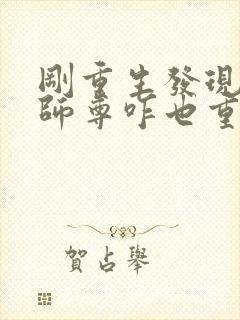 剛重生發現
師尊咋也重
賀占舉